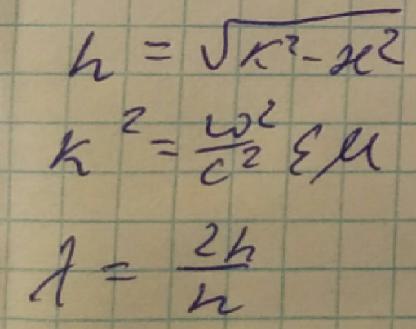 h = √(k² - ϰ²)
k² = ω²/c² εμ
λ = 2π/h